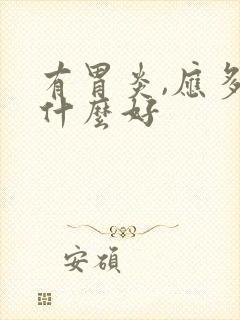 有胃炎,應多
什麼好
安碩